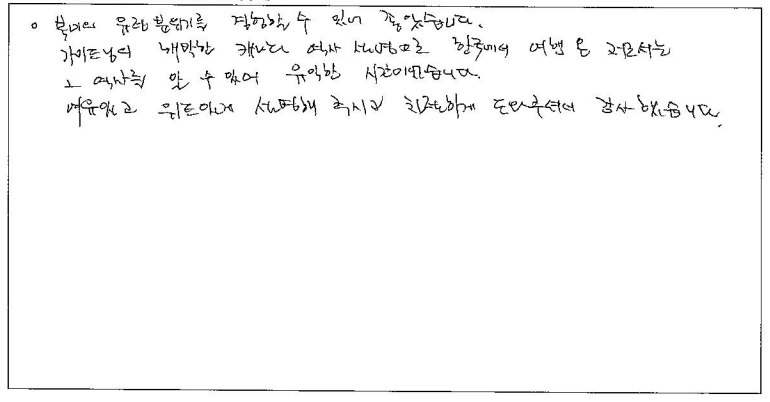 ○ 북미의 유럽 분위기를 경험할 수 있어 좋았습니다.
가이드님의 해박한 캐나다 역사 설명으로 한국에서 여행 온 저로서는
그 역사를 알 수 있어 유익한 시간이었습니다.
여유있고 위트있게 설명해 주시고 친절하게 도와주셔서 감사했습니다.